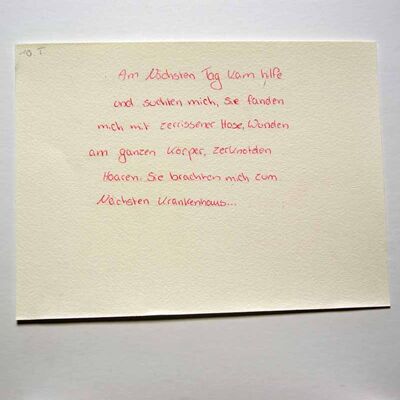 10. T.
Am Nächsten Tag kam hilfe
und suchten mich, Sie fanden
mich mit zerrissener Hose, Wunden
am ganzen Körper, zerknotden
Haaren. Sie brachten mich zum
Nächsten Krankenhaus...